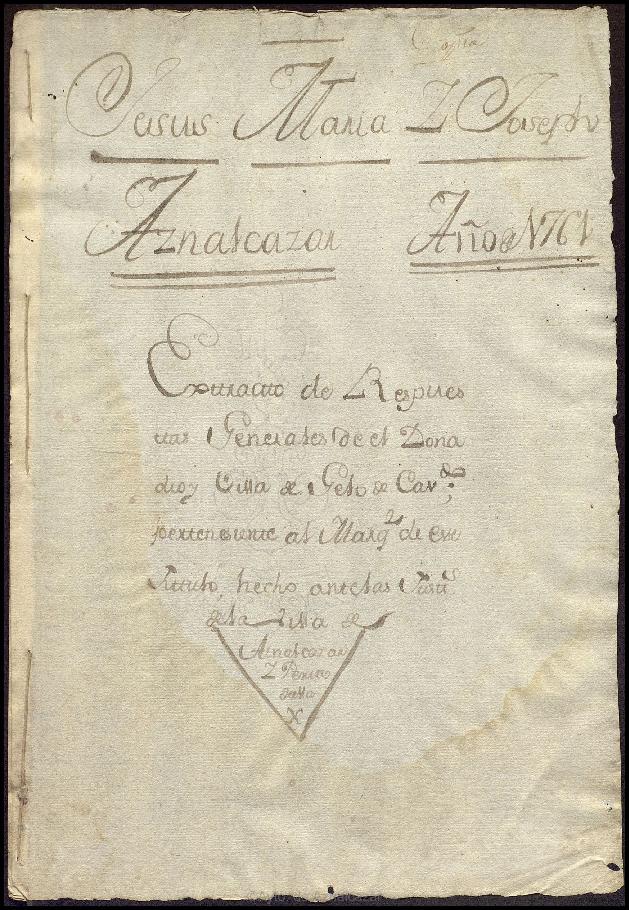 Copia
Jesus Maria Z Joseph
Aznalcazar Año de 1761
Extracto de Respues
tas Generales de el Dona
dio y Villa de Gelo de Cavs
perteneciente al Marqs de este
Titulo, hecho ante las Justis
de la Villa de
Aznalcazar
Z Peritos
de ella
X